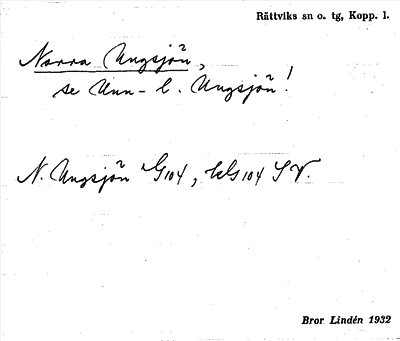 Rättviks sn o. tg, Kopp. l.
Norra Ungsjön,
se Unn- l. Ungsjön!
N. Ungsjön G104, 104 SV.
Bror Lindén 1932